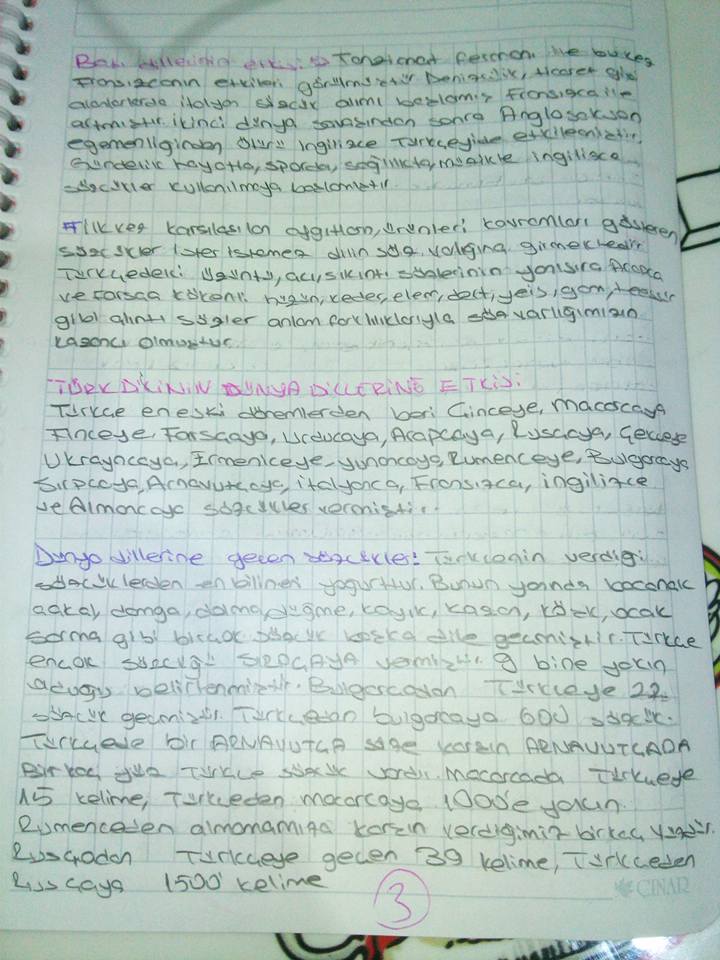 Batı dillerinin etkisi: Tanzimat fermanı ile bu kez
Fransızcanın etkileri görülmüştür Denizcilik, ticaret gibi
alanlarlarda italyan sözcük alımı başlamış Fransızca ile
artmıştır. ikinci dünya savaşından sonra Anglosakson
egemenliğinden ötürü ingilizce Türkçeyide etkilemiştir.
Gündelik hayatta, sporda, sağlıkta, müzikte ingilizce
sözcükler kullanılmaya başlamıştır.
İlk kez karşılaşılan aygıtları, ürünleri kavramları gösteren
sözcükler ister istemez dilin söz varlığına girmektedir
Türkçedeki üzüntü, acı, sıkıntı sözlerinin yanısıra Arapca
ve farsça kökenli hüzün, keder, elem, dert, yeis, gam, teessür
gibi alıntı sözler anlam farklılıklarıyla söz varlığımızın
kazancı olmuştur
TÜRK DİLİNİN DÜNYA DİLLERİNE ETKİSİ:
Türkçe en eski dönemlerden beri Çinceye, Macarcaya
Finceye, Farsçaya, Urducaya, Arapcaya, Rusçaya,
Ukraycaya, Ermeniceye, yunancaya, Rumenceye, Bulgarcaya
Sırpçaya, Arnavutcaya, italyanca, Fransızca, ingilizce
ve Almancaya sözcükler vermiştir.
Dünya dillerine geçen sözcükler: Türkçenin verdiği
sözcüklerden en bilineni yoğurttur. Bunun yanında bacanak
çakal, damga, dolma, düğme, kayık, kazan, köşk, ocak
sarma gibi birçok sözcük başka dile geçmiştir. Türkçe
ençok sözcüğü SIRPÇAYA vermiştir. 9 bine yakın
olduğu belirlenmiştir. Bulgarcadan Türkçeye 22
sözcük geçmiştir. Türkçeden bulgarcaya 600 sözcük.
Türkçede bir ARNAVUTÇA söze karşın ARNAVUTÇADA
Birkaç yüz Türkçe sözcük vardır. Macarcada Türkçeye
15 kelime, Türkçeden macarcaya 1000'e yakın.
Rumenceden almamamıza karşın verdiğimiz birkaç yüzdür.
Rusçadan Türkçeye geçen 39 kelime, Türkçeden
Rusçaya 1500 kelime
3
ÇINAR